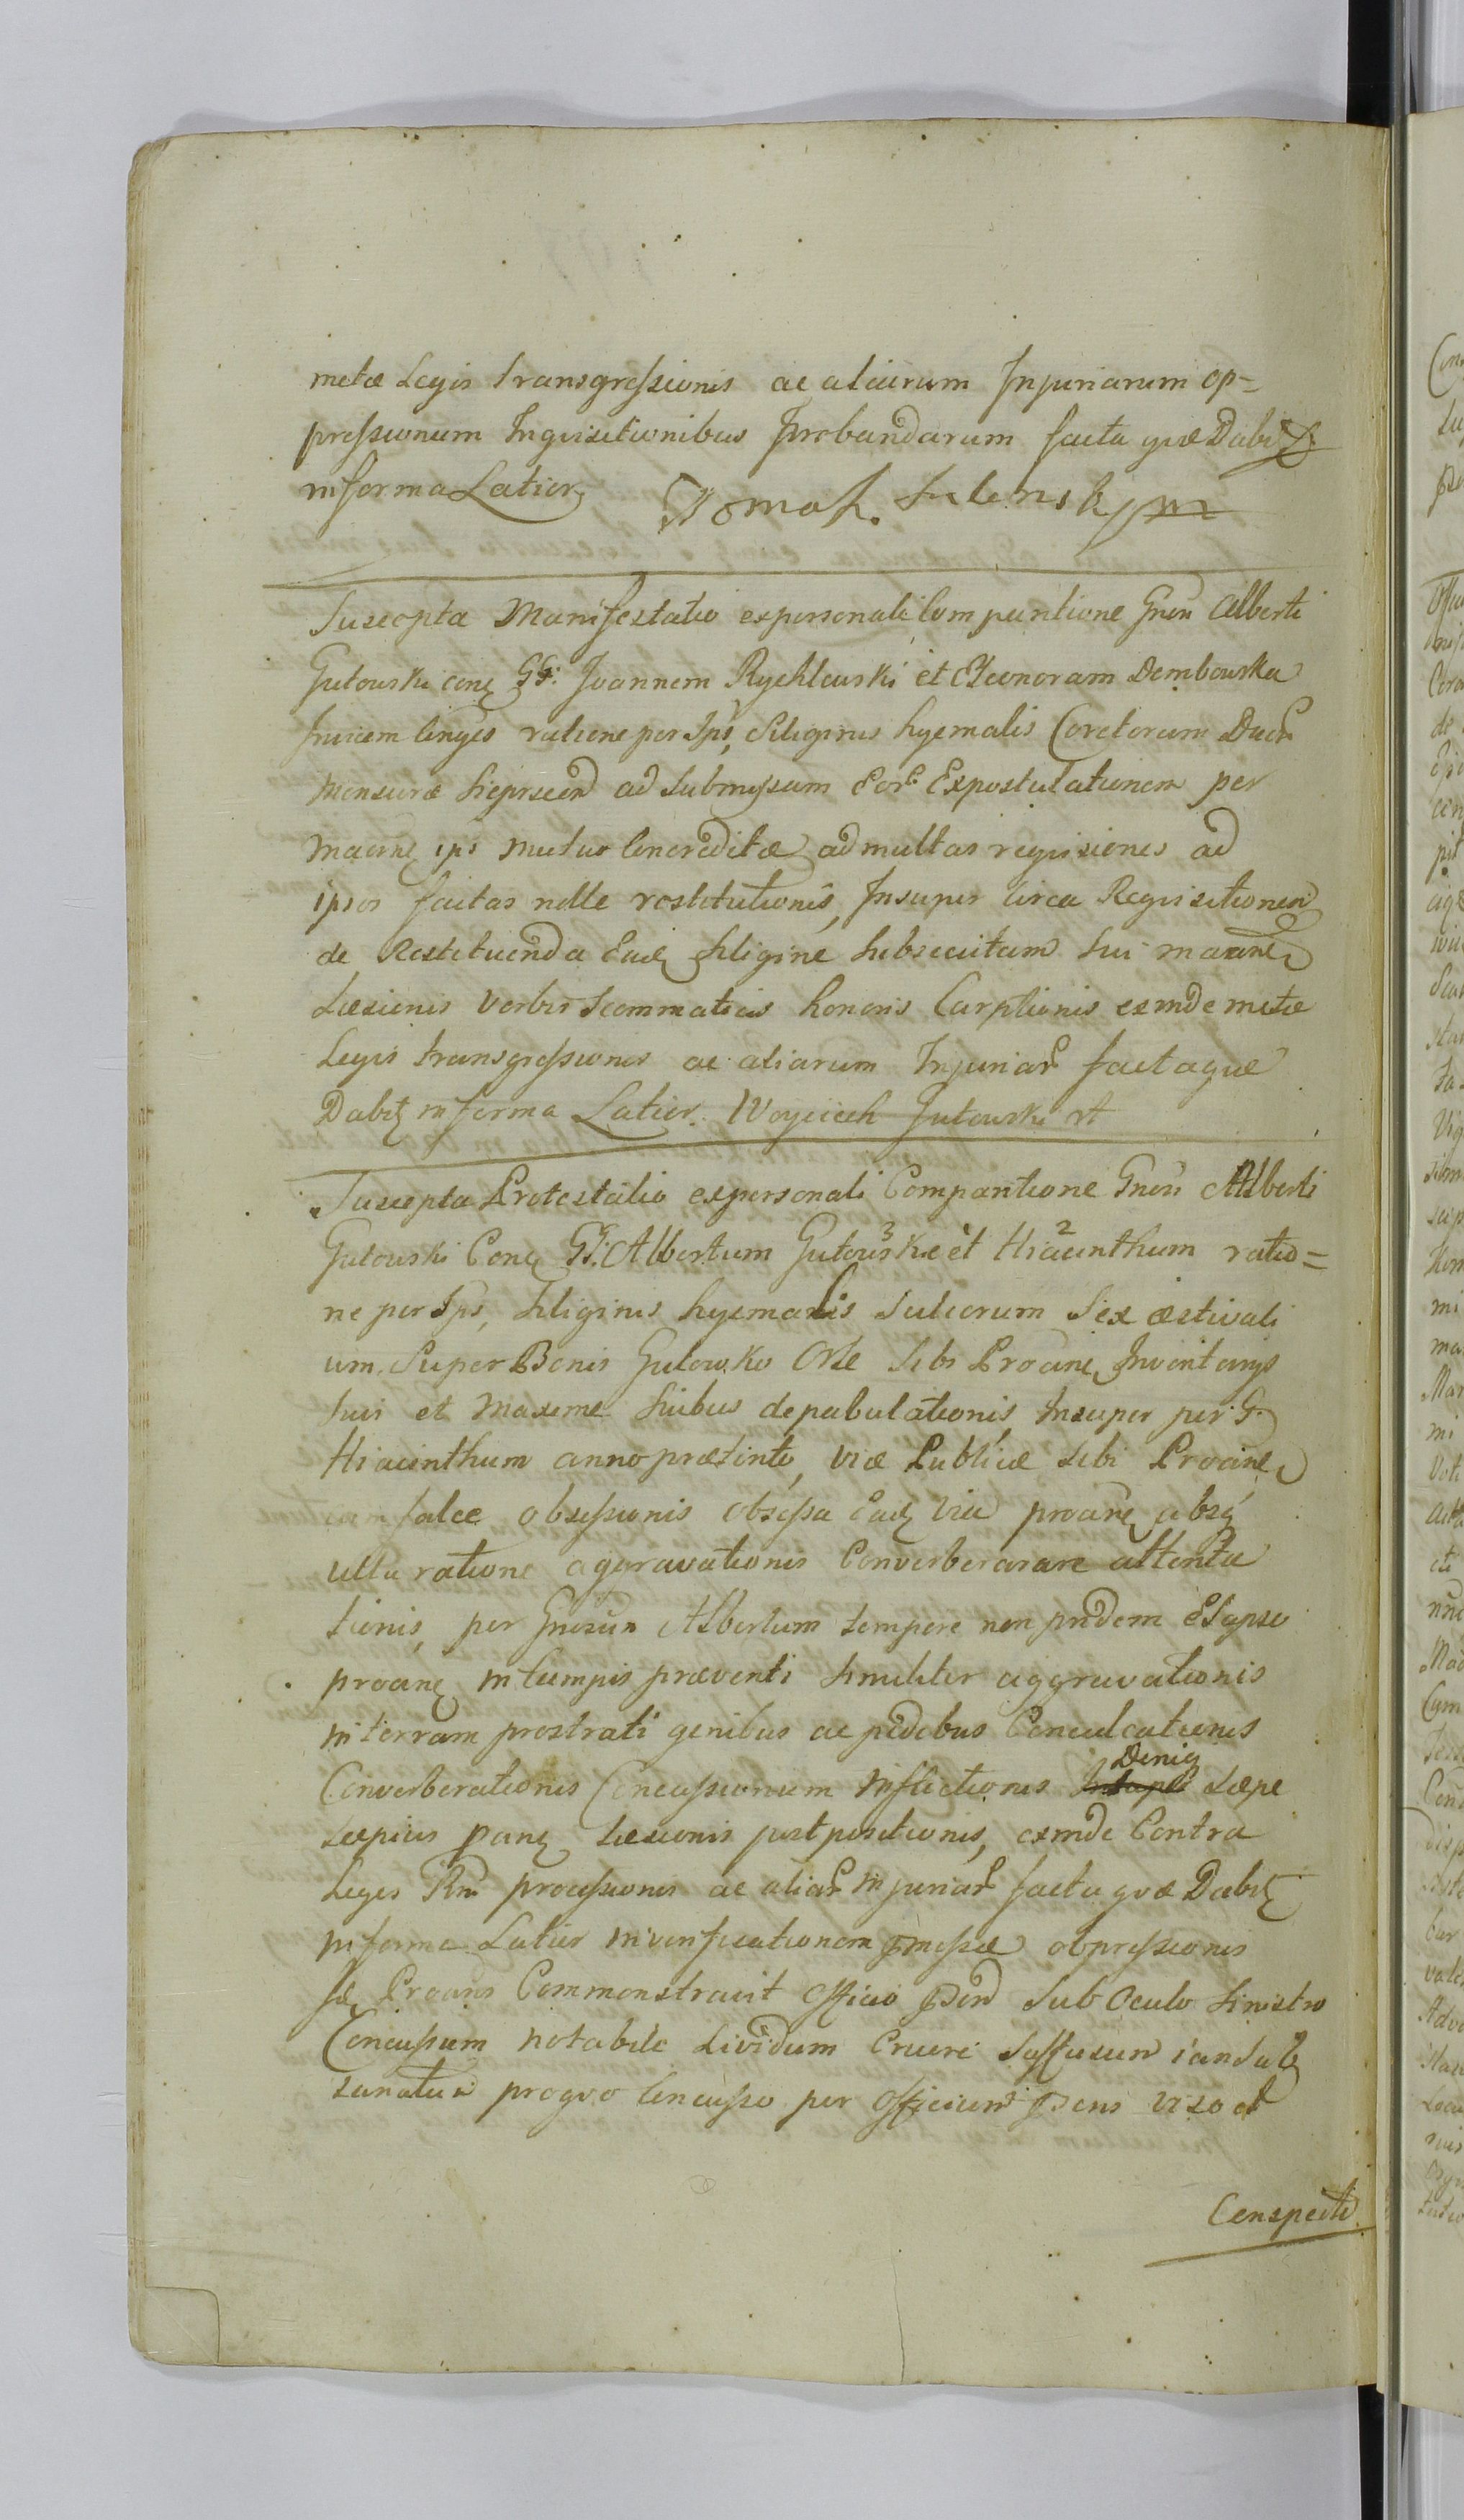 metæ Legis transgressionis ac aliarum Injuriarum op=
pressionum Inqvisitionibus probandarum facta qvæ Dabit
in forma Latior
Suscepta Manifestatio expersonali Comparitione Gneri Alberti
Gutowski conq GG: Joannem Rychlewski et Eleonoram Dembowska
Invicem Conjges ratione per Ips, Siliginis hyemalis Coretorum Duor
Mensuræ ad submissam Eor Expostulationem per
Macnq ips mutuo Concreditæ ad multas reqvisiones ad
ipsos factas nolle restitutionis, Insuper circa Reqvisitionem
de Restituenda Eadq siligine subsecutam sui
Læsionis verbis scommaticis honoris Carptionis exinde metæ
Legis transgressionis ac aliarum Injuriar facta qvæ
Dabitq in forma Latior. Woyciech Gutowski
Suscepta Protestatio expersonali Comparitione Gneri Alberti
Gutowski Conq GG: Albertum Gutowski 3 et Hiacinthum 2 ratio=
ne per Ips, siliginis hyemalis Sulcorum Sex æstivali
um Super Bonis Gutowko Orle sibi Procine Inventarys
suis et Maxime suibus depabulationis, Insuper per G.
Hiacinthum anno præterito, viæ Publicæ sibi Procine
cum falce obsessionis obsessa Eadq via procine absq
ulla ratione aggravationis Converberarare attenta
tionis, per Gnosum Albertum tempore non pridem Elapso
procinq in campis præventi similiter aggravationis
in terram prostrati genibus ac pedibus Conculcationis
Converberationis Concussionum inflictionis Deniq sæpe
sæpius panq Læsionis postpositionis, exinde Contra
Leges Rni processionis ac aliar injuriar facta qvæ Dabitq
in forma Latior in verificationem pmissæ obpressionis
se Procins Commonstravit Officio pnd Sub Oculo Sinistro
Concussum notabile Lividum Cruore Suffusum
sanatum pro qvo Concusso per Officium pdens viso et
Conspecto